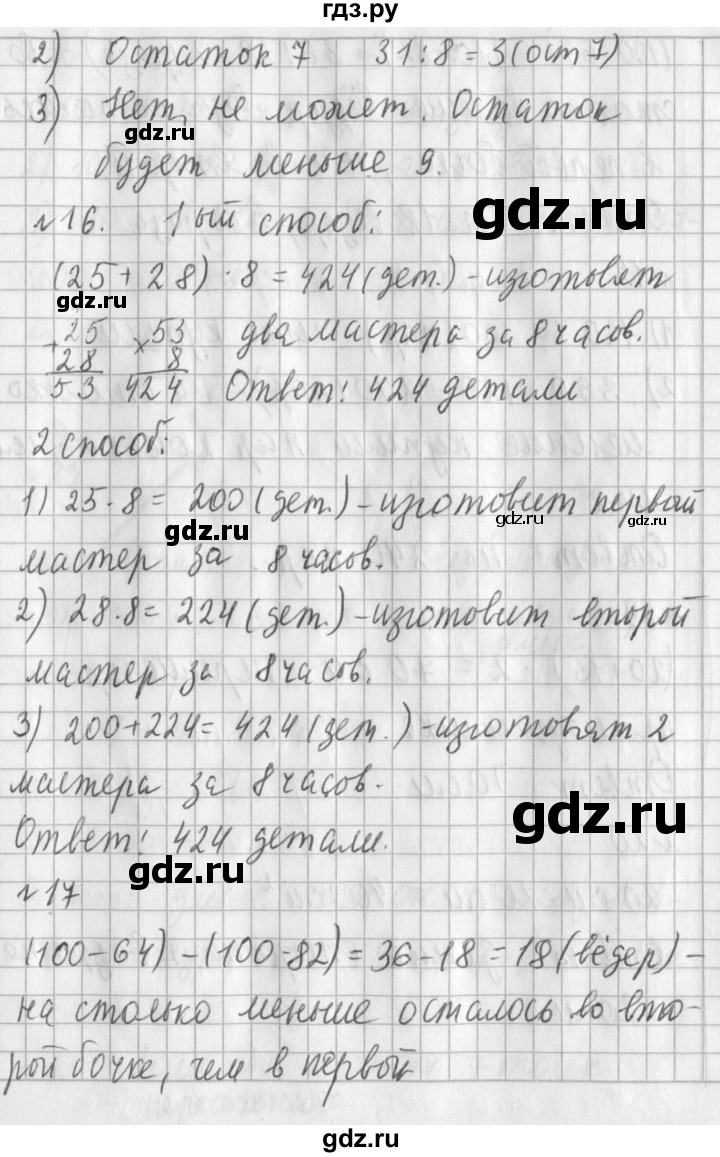 гдз.ру
2) Остаток 7 31:8=3(ост 7)
3) Нет, не может. Остаток
gdz.ru
будет меньше 9.
gdz.ru
№16. 1ый способ:
(25+28)·8=424(дет.)-изготовят
gdz.ru
+25 ×53 два мастера за 8 часов.
28 8
53 424 Ответ: 424 детали
2 способ:
1) 25·8=200(дет.)-изготовит первый
gdz.ru gdz.ru
мастер за 8 часов.
2) 28·8=224(дет.)-изготовит второй
мастер за 8 часов.
3) 200+224=424(дет.)-изготовят 2
мастера за 8 часов.
gdz.ru
Ответ: 424 детали.
gdz.ru
№17
(100-64)-(100-82)=36-18=18(вёдер)-
на столько меньше осталось во вто-
рой бочке, чем в первой
gdz.ru